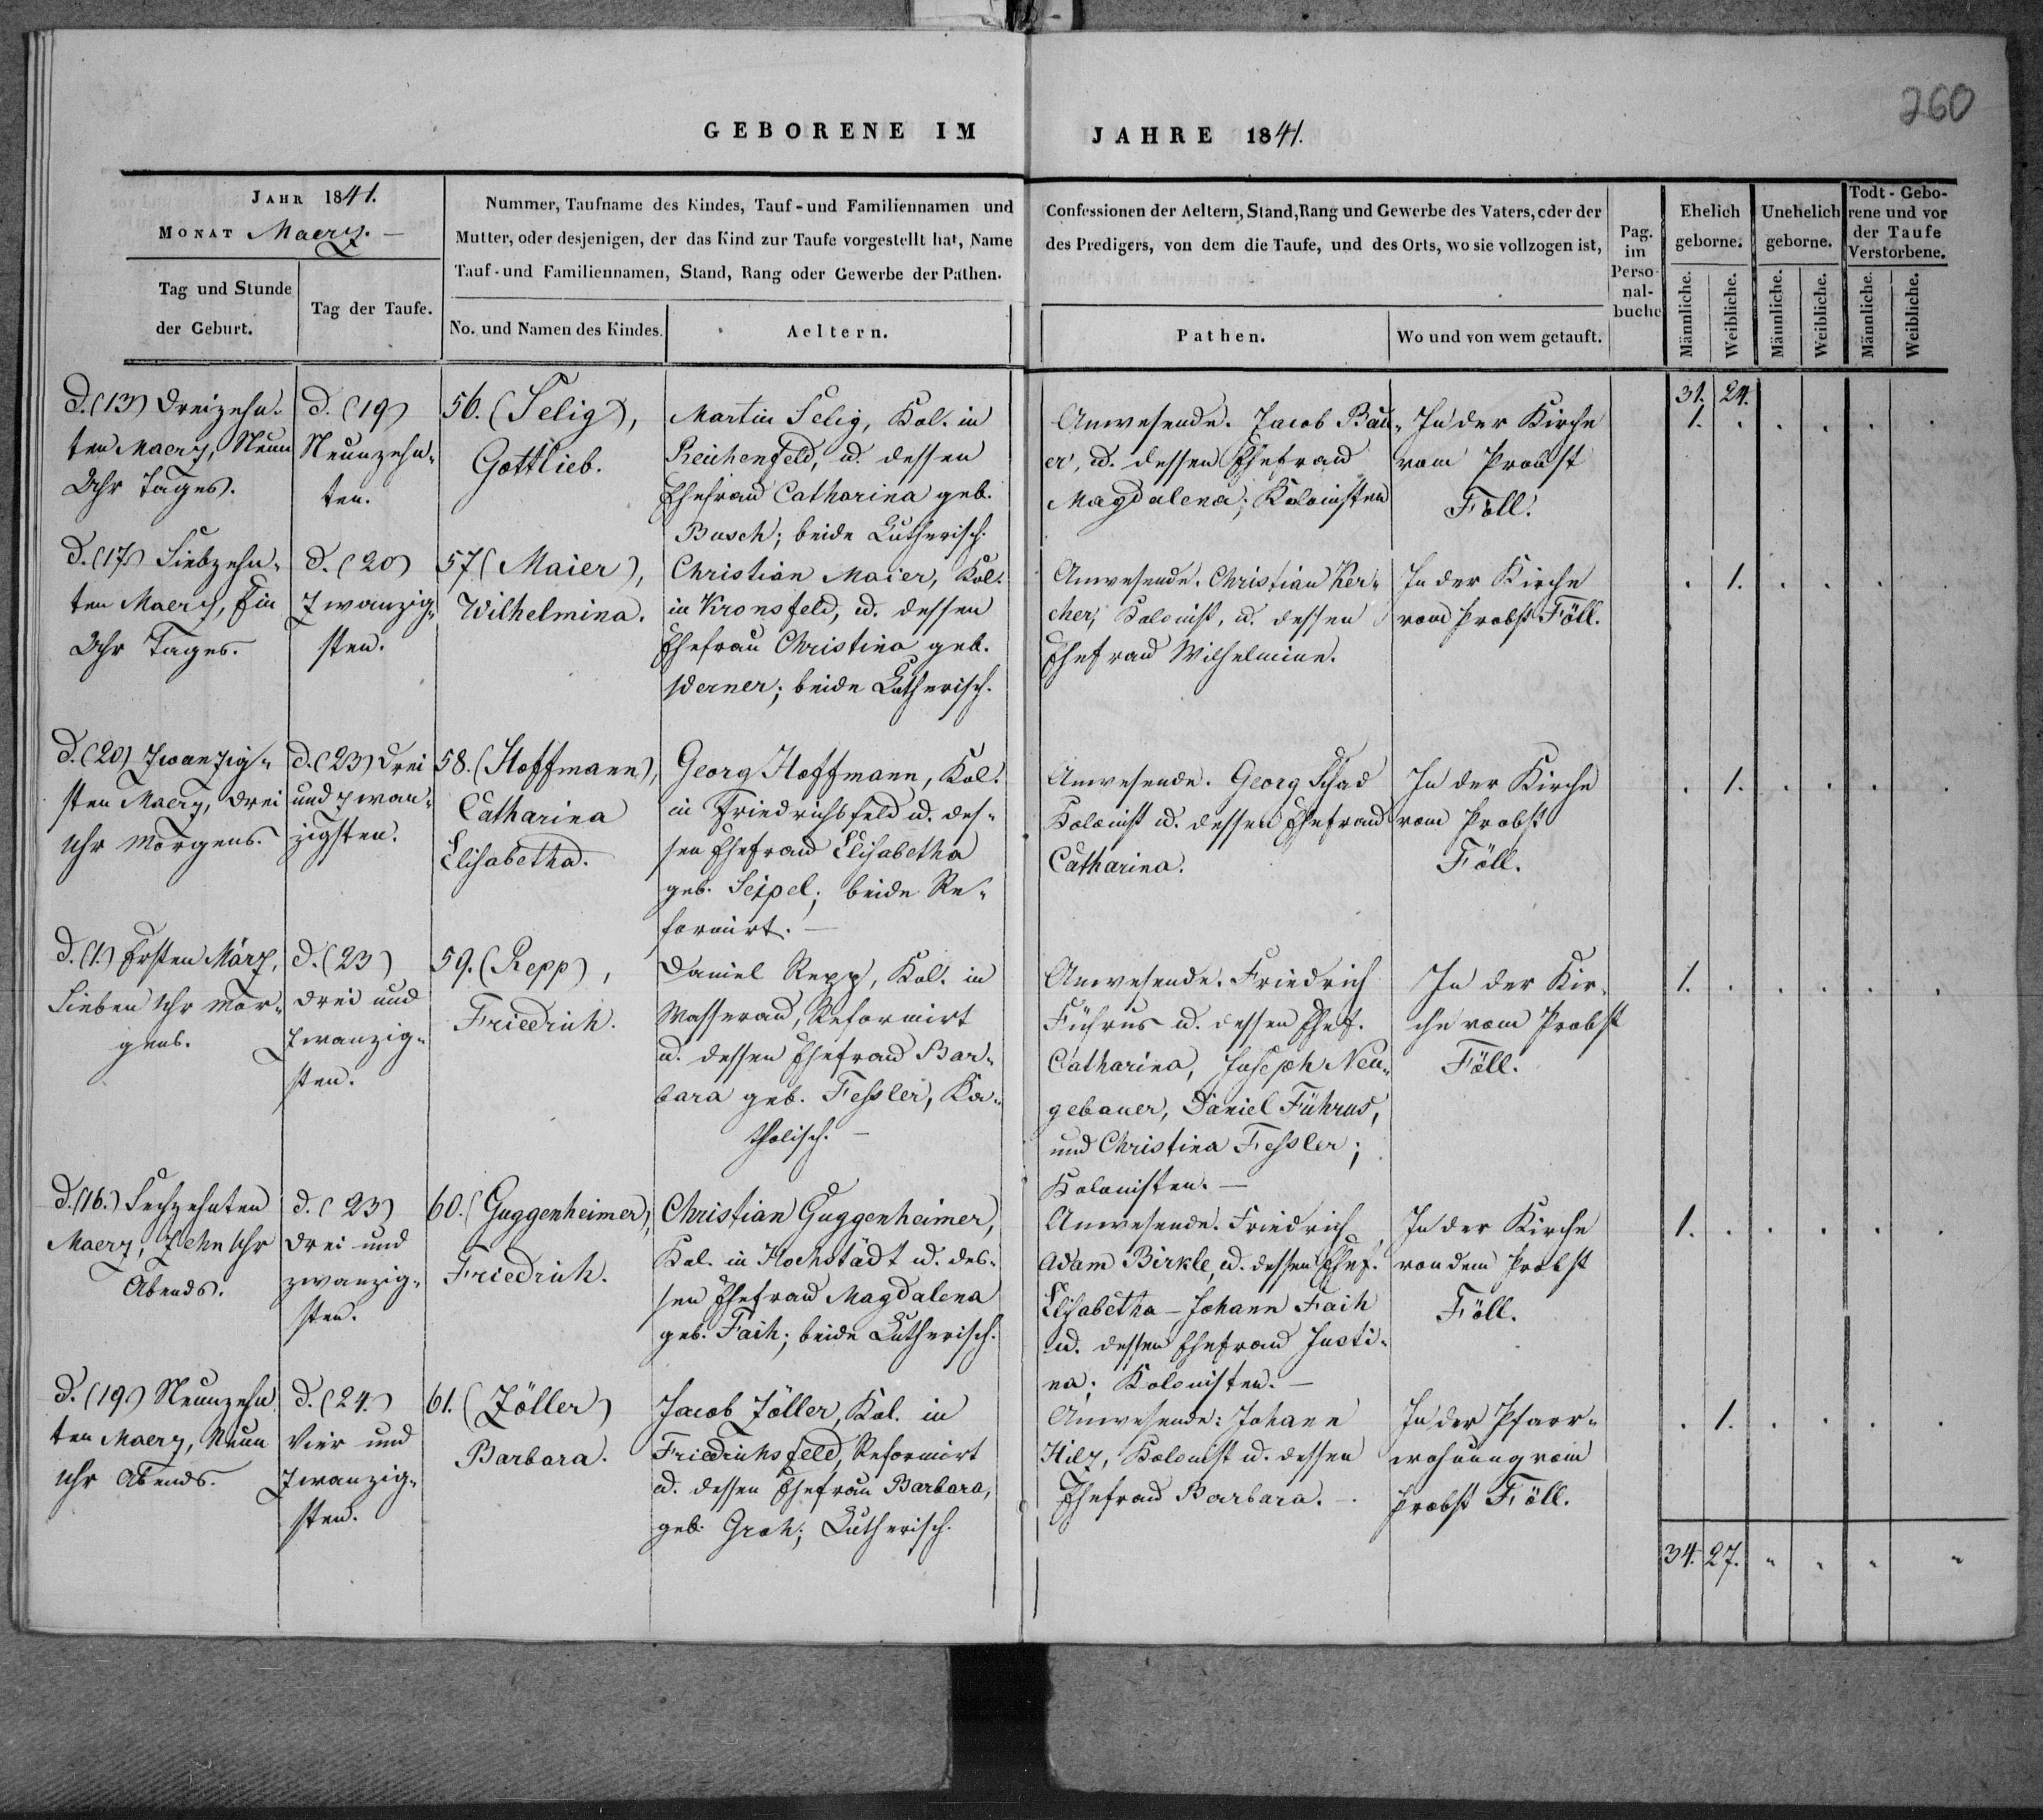 260
GEBORENE IM JAHRE 1841.
JAHR 1841.
MONAT Maerz. —
Tag und Stunde der Geburt.
Tag der Taufe.
Nummer, Taufname des Kindes, Tauf- und Familiennamen und
Mutter, oder desjenigen, der das Kind zur Taufe vorgestellt hat, Name
Tauf- und Familiennamen, Stand, Rang oder Gewerbe der Pathen.
No. und Namen des Kindes.
Aeltern.
Confessionen der Aeltern, Stand, Rang und Gewerbe des Vaters, oder der
des Predigers, von dem die Taufe, und des Orts, wo sie vollzogen ist,
Pathen.
Wo und von wem getauft.
Pag.
im
Perso-
nal-
buche
Ehelich
geborne.
Unehelich
geborne.
Todt-Gebo-
rene und vor
der Taufe
Verstorbene.
Männliche.
Weibliche.
Männliche.
Weibliche.
Männliche.
Weibliche.
31. 24.
d. (13) Dreizehn-
ten Maerz, Neun
Uhr Tages.
d. (19)
Neunzehn-
ten.
56. (Selig),
Gottlieb.
Martin Selig, Kol. in
Reichenfeld, u. dessen
Ehefrau Catharina geb.
Busch; beide Lutherisch.
Anwesende. Jacob Bau-
er, u. dessen Ehefrau
Magdalena; Kolonisten
In der Kirche
vom Probst
Föll.
1. . . . . .
d. (17) Siebzehn-
ten Maerz, Ein
Uhr Tages.
d. (20)
Zwanzig-
sten.
57 (Maier),
Wilhelmina.
Christian Maier, Kol.
in Kronsfeld, u. dessen
Ehefrau Christina geb.
Werner; beide Lutherisch.
Anwesende. Christian Ker-
cher, Kolonist, u. dessen
Ehefrau Wilhelmine.
In der Kirche
vom Probst Föll.
. 1. . . .
d. (20) Zwanzig-
sten Maerz, Drei
Uhr Morgens.
d. (23) Drei
und zwan-
zigsten.
58. (Hoffmann),
Catharina
Elisabetha.
Georg Hoffmann, Kol.
in Friedrichsfeld u. des-
sen Ehefrau Elisabetha
geb. Seipel; beide Re-
formirt. —
Anwesende. Georg Schad
Kolonist u. dessen Ehefrau
Catharina.
In der Kirche
vom Probst
Föll.
. 1. . . . .
d. (1.) Ersten März,
Sieben Uhr Mor-
gens.
d. (23)
Drei und
Zwanzig-
sten.
59. (Repp),
Friedrich.
Daniel Repp, Kol. in
Wasserau, Reformirt
u. dessen Ehefrau Bar-
bara geb. Fessler, Ka-
tholisch. —
Anwesende. Friedrich
Führus u. dessen Ehef.
Catharina, Joseph Neu-
gebauer, Daniel Führus,
und Christina Fessler;
Kolonisten. —
In der Kir-
che vom Probst
Föll.
1. . . . . .
d. (16.) Sechzehnten
Maerz, Zehn Uhr
Abends.
d. (23)
Drei und
zwanzig-
sten.
60. (Guggenheimer),
Friedrich.
Christian Guggenheimer,
Kol. in Hochstädt u. des-
sen Ehefrau Magdalena
geb. Faih; beide Lutherisch.
Anwesende. Friedrich
Adam Birkle, u. dessen Ehef.
Elisabetha — Johann Faih
u. dessen Ehefrau Justi-
na; Kolonisten. —
In der Kirche
von dem Probst
Föll.
1. . . . . .
d. (19) Neunzehn
ten Maerz, Neun
Uhr Abends.
d. (24.)
Vier und
Zwanzig-
sten.
61. (Zöller)
Barbara.
Jacob Zöller, Kol. in
Friedrichsfeld, Reformirt
u. dessen Ehefrau Barbara,
geb. Groh; Lutherisch.
Anwesende: Johann
Hilz, Kolonist u. dessen
Ehefrau Barbara. —
In der Pfarr-
wohnung vom
Probst Föll.
. 1. . . . .
34. 27. " " " "